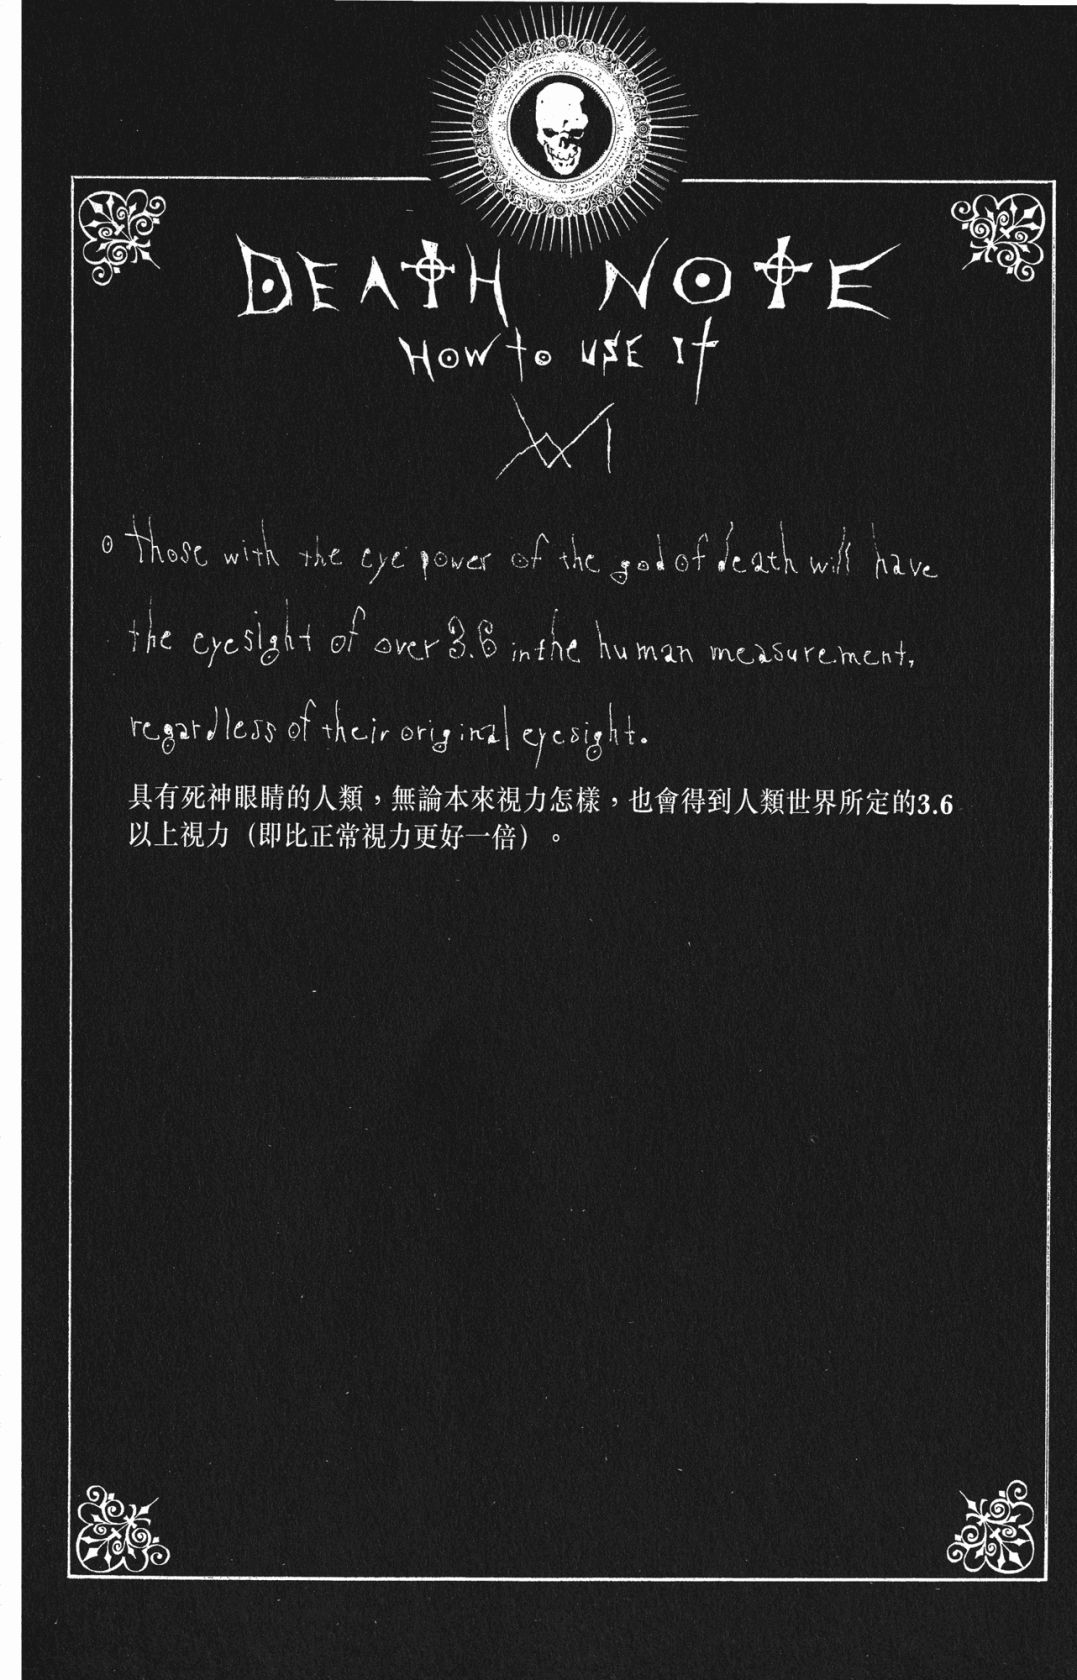 DEATH NOTE
HOW to USE It
XVI
those with the eye power of the god of death will have
the eyesight of over 3.6 in the human measurement,
regardless of their original eyesight.
具有死神眼睛的人類，無論本來視力怎樣，也會得到人類世界所定的3.6
以上視力（即比正常視力更好一倍）。